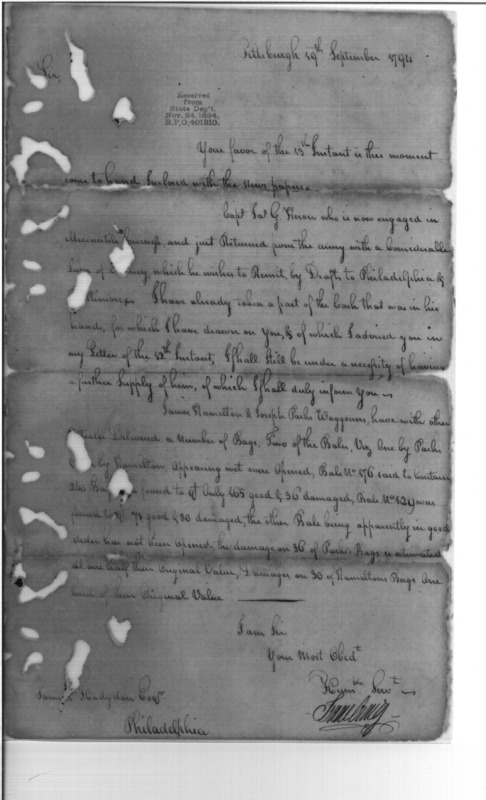 Pittsburgh 19th September 1794
Sir,
Received
from
State Dep't.
Nov. 24. 1894.
R.P.O. 401310.
Your favor of the 13th Instant is this moment
come to hand Inclosed with the News papers.
Capt Jas G. Heron who is now engaged in
Mercantile business, and just Returned from the army with a Considerable
Sum of Money, which he wishes to Remit, by Drafts to Philadelphia &
I have already taken a part of the Cash that was in his
hands, for which I have drawn on you, & of which I advised you in
my Letter of the 13th Instant, I shall still be under a necessity of having
a further Supply of him, of which I shall duly inform You
James Hamilton & Joseph Parks Waggoners, have with other
Articles Delivered a Number of Bags, Two of the Bales, Viz One by Parks
by Hamilton, Appearing wet were Opened, Bale No 176 said to Contain
240 found to Only 165 good & 36 damaged, Bale No was
found to 71 good & 30 damaged, the other Bale being apparently in good
order has not been Opened, the damage on 36 of Parks Bags is estimated
at one half their Original Value, Damages on 30 of Hamiltons Bags One
third of their Original Value
I am Sir
Your Most Obedt
Humble Servt
Isaac Craig
Samuel Hodgdon Esqr.
Philadelphia